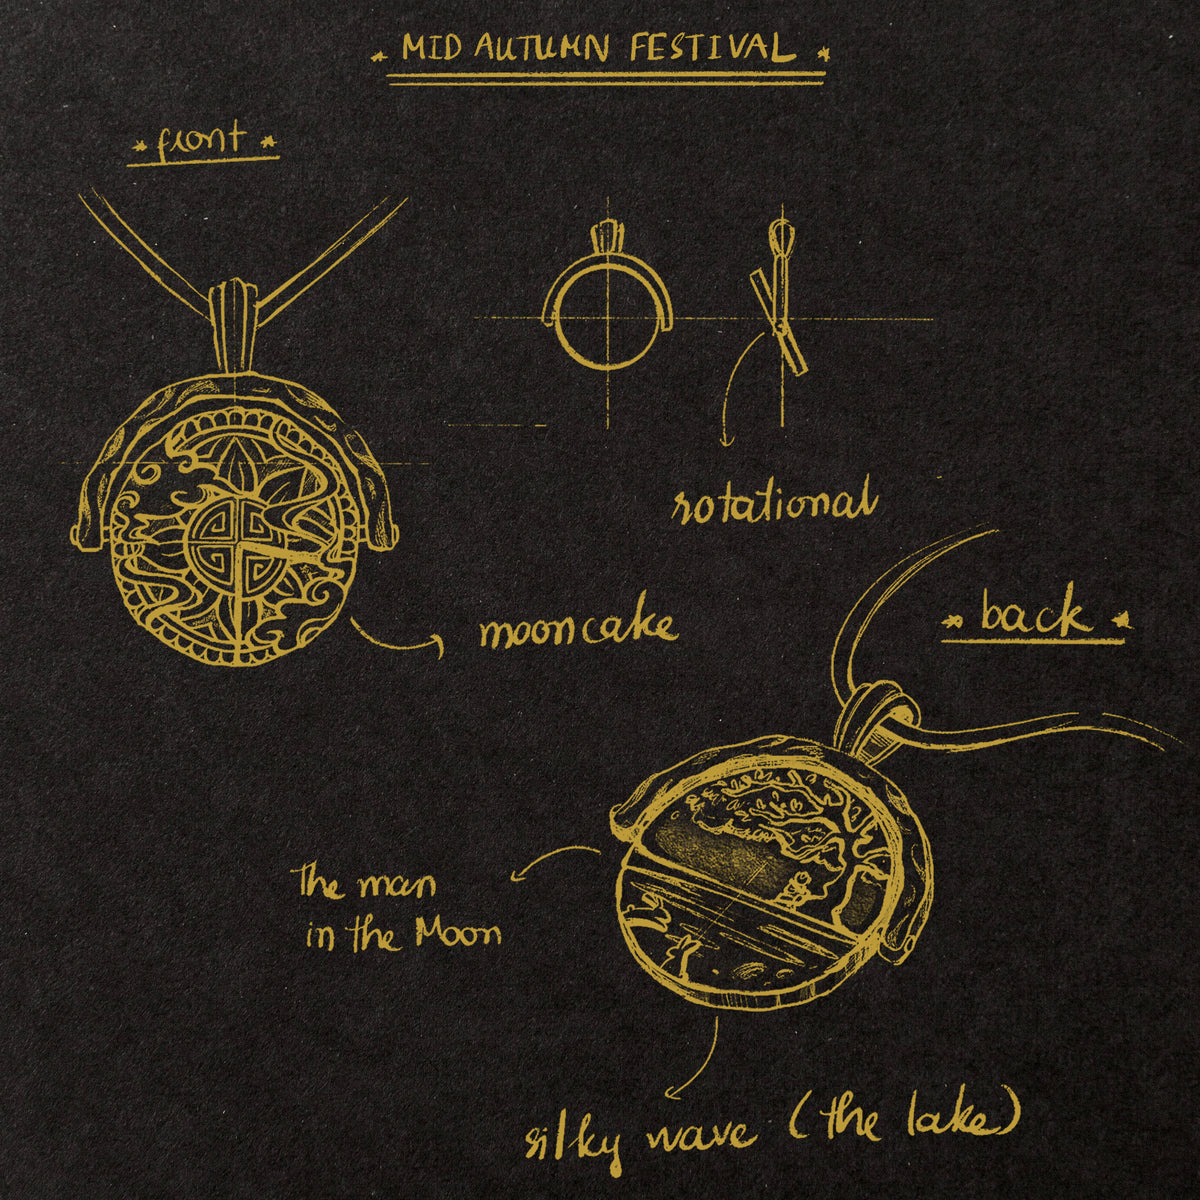 MID AUTUMN FESTIVAL
front
rotational
back
mooncake
the man
in the Moon
silky wave (the lake)